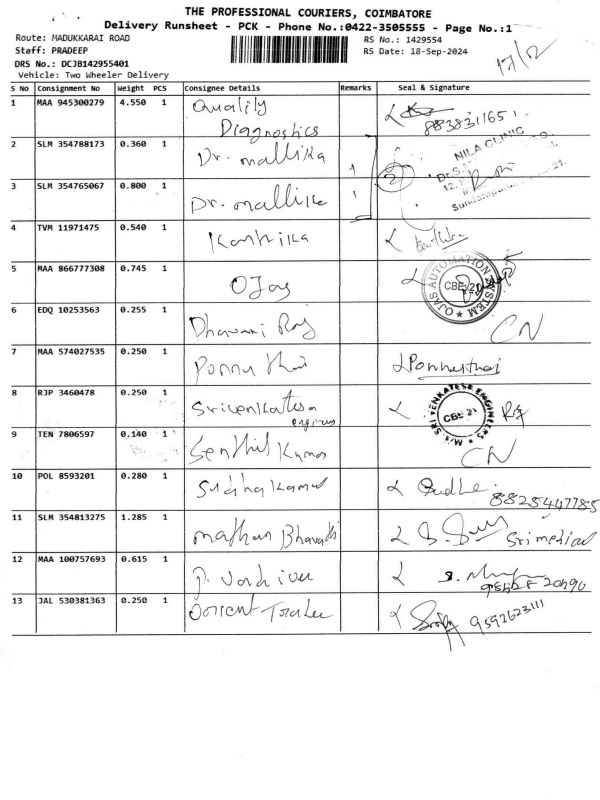 THE PROFESSIONAL COURIERS, COIMBATORE
Delivery Runsheet - PCK - Phone No.:0422-3505555 - Page No.:1
Route: MADUKKARAI ROAD
RS No.: 1429554
Staff: PRADEEP
RS Date: 18-Sep-2024
DRS No.: DCJB142955401
Vehicle: Two Wheeler Delivery
S No Consignment No Weight PCS Consignee Details Remarks Seal & Signature
1 MAA 945300279 4.550 1 Quality
Diagnostics 8838311651
2 SLM 354788173 0.360 1 Dr. mallika NILA CLINIC
3 SLM 354765067 0.800 1 Dr. mallika
4 TVM 11971475 0.540 1 Karthika
5 MAA 866777308 0.745 1 OJas OJAS AUTOMATION SYSTEM CBE 21
6 EDQ 10253563 0.255 1 Raj CN
7 MAA 574027535 0.250 1 Ponnu thai
8 RJP 3460478 0.250 1 M/s. SRI VENKATESA ENGINEERS CBE 21
9 TEN 7806597 0.140 1 Senthil Kumar CN
10 POL 8593201 0.280 1 8825447785
11 SLM 354813275 1.285 1 mathan Bharathi Sri medical
12 MAA 100757693 0.615 1
13 JAL 530381363 0.250 1 9592623111